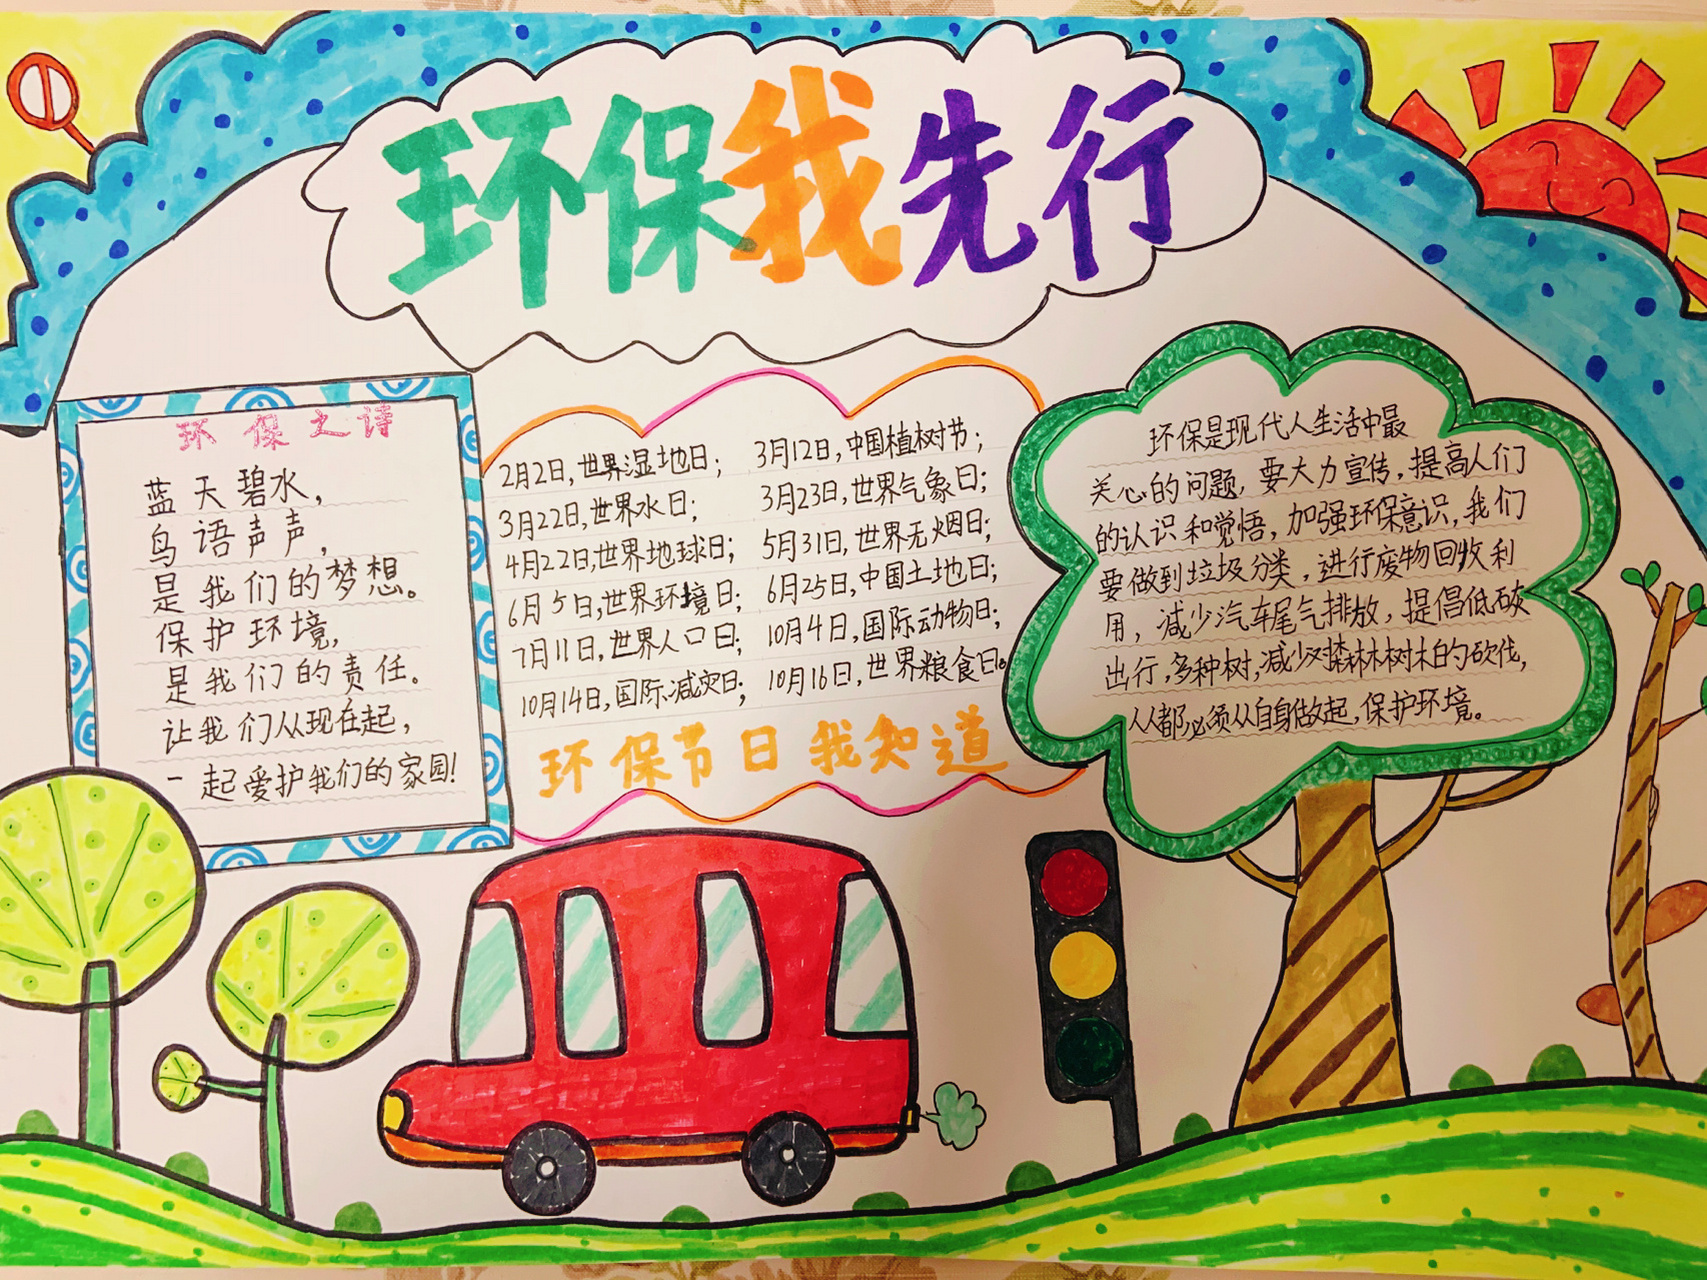 环保我先行
环保之诗
蓝天碧水，
鸟语声声，
是我们的梦想。
保护环境，
是我们的责任。
让我们从现在起，
一起爱护我们的家园！
2月2日，世界湿地日； 3月12日，中国植树节；
3月22日，世界水日； 3月23日，世界气象日；
4月22日，世界地球日； 5月31日，世界无烟日；
6月5日，世界环境日； 6月25日，中国土地日；
7月11日，世界人口日； 10月4日，国际动物日；
10月14日，国际减灾日； 10月16日，世界粮食日。
环保节日我知道
环保是现代人生活中最
关心的问题，要大力宣传，提高人们
的认识和觉悟，加强环保意识，我们
要做到垃圾分类，进行废物回收利
用，减少汽车尾气排放，提倡低碳
出行，多种树，减少对森林树木的砍伐，
人人都必须从自身做起，保护环境。